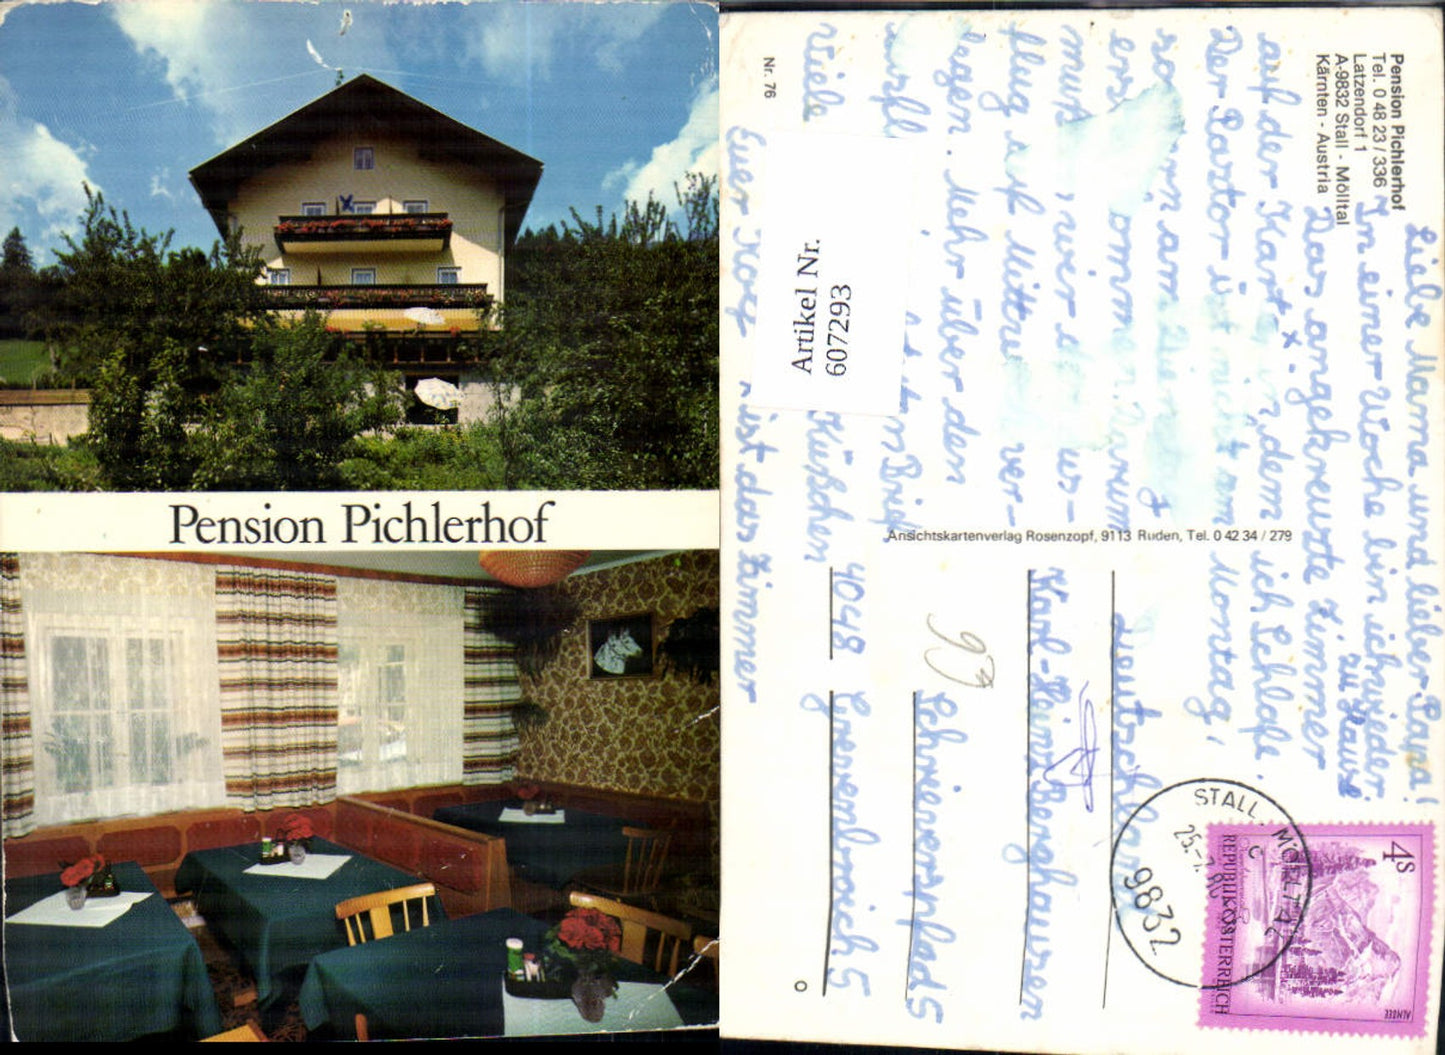 Pension Pichlerhof
Pension Pichlerhof
Tel. 0 48 23 / 336
Latzendorf 1
A-9832 Stall - Mölltal
Kärnten - Austria
Nr. 76
Liebe Mama und lieber Papa!
In einer Woche bin ich wieder
zu Hause.
Das angekreuzte Zimmer
auf der Kart x dem ich Schlafe.
Der Pastor ist nicht am Montag,
ern am
er ommen. Warum
muß
flug auf Mittwo ver-
legen. Mehr über den
im Brief
Viele Küßchen
Euer ist das Zimmer
Artikel Nr.
607293
Ansichtskartenverlag Rosenzopf, 9113 Ruden, Tel. 0 42 34 / 279
Deutschland
Karl-Heinz Berghausen
Schwiersspfad 5
4048 Grevenbroich 5
STALL, MÖLLTAL
25.-7.80
9832
4S
REPUBLIK ÖSTERREICH
ALMSEE